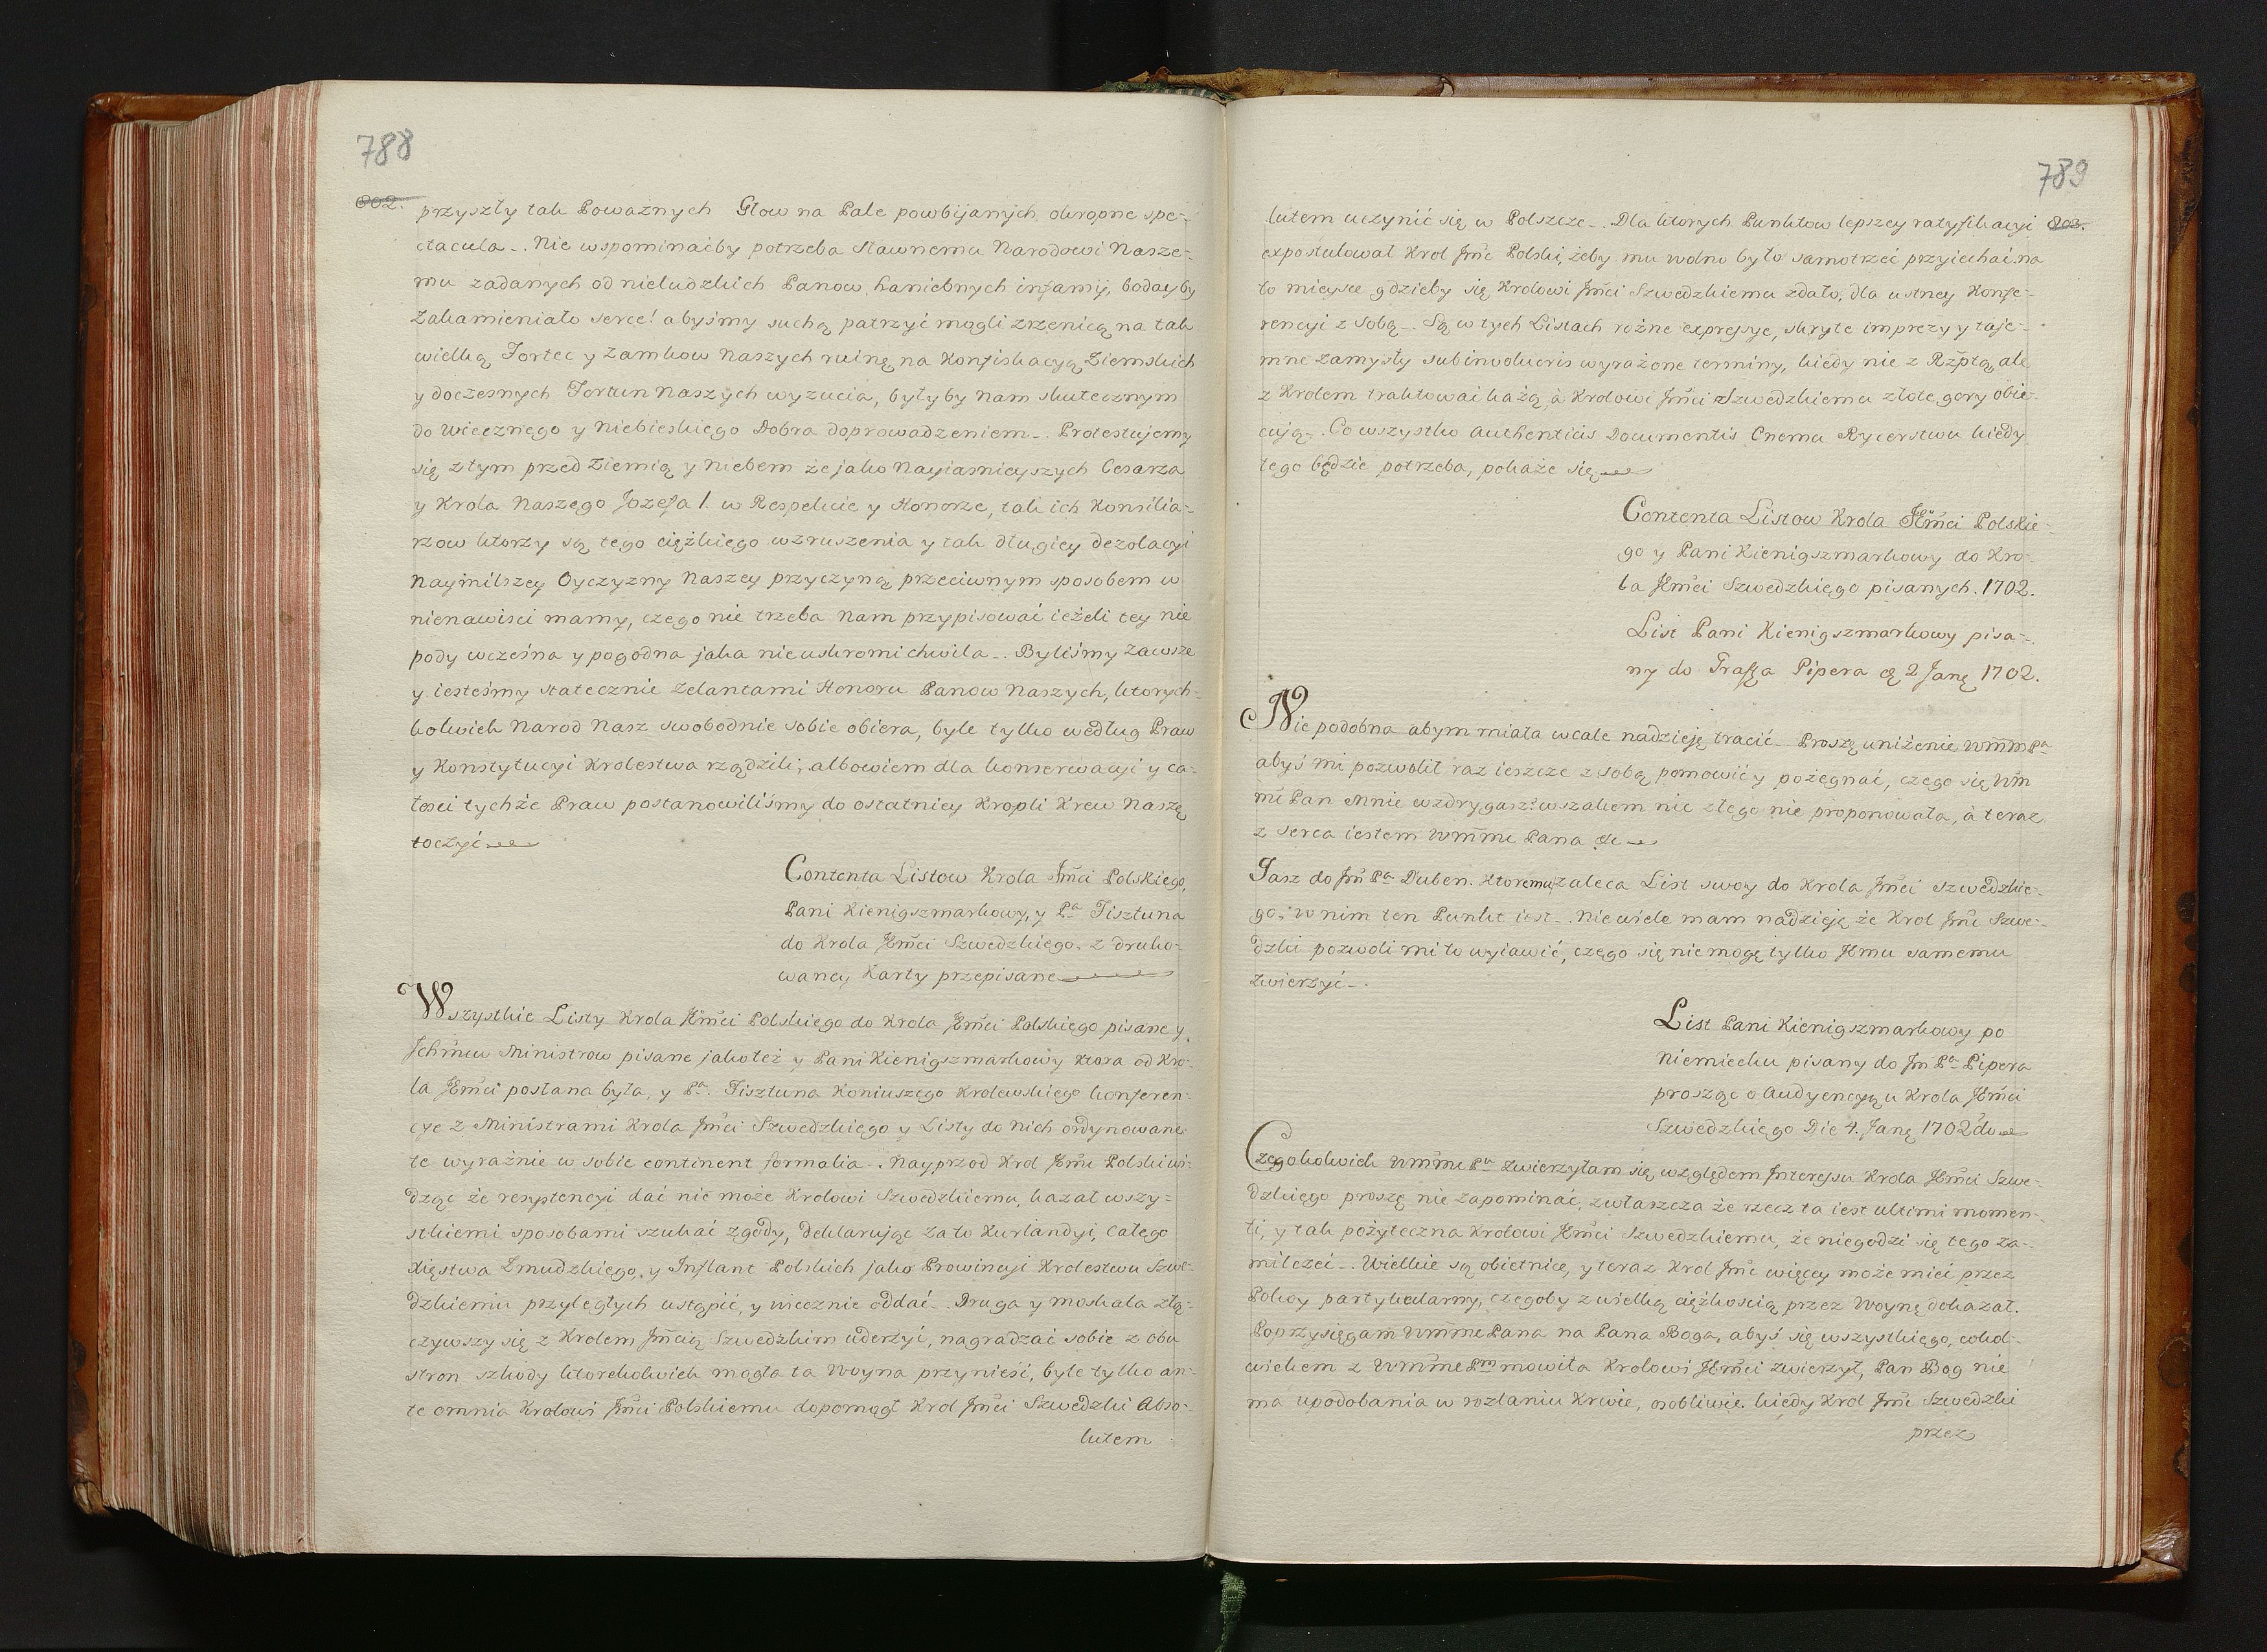 788
802.
przyszły tak Poważnych Głow na Pale powbijanych okropne spe-
ctacula. Nie wspominaćby potrzeba sławnemu Narodowi Nasze-
mu zadanych od nieludzkich Panow haniebnych infamij, bodayby
zakamieniało serce! abyśmy suchą patrzyć mogli zrzenicą na tak
wielką Fortec y Zamkow Naszych ruinę na Konfiskacyą Ziemskich
y doczesnych Fortun Naszych wyzucia, byłyby Nam skutecznym
do wiecznego y Niebieskiego Dobra doprowadzeniem. Protestujemy
się z tym przed Ziemią y Niebem że jako Nayiasnieyszych Cesarza
y Krola Naszego Jozefa I. w Respekcie y Honorze, tak ich Konsilia-
rzow ktorzy są tego ciężkiego wzruszenia y tak długiey dezolacyi
Naymilszey Oyczyzny Naszey przyczyną przeciwnym sposobem w
nienawisci mamy, czego nie trzeba Nam przypisować ieżeli tey nie
pody wcześna y pogodna jaka nie uskromi chwila. Byliśmy zawsze
y iesteśmy statecznie Zelantami Honoru Panow Naszych, ktorych-
kolwiek Narod Nasz swobodnie sobie obiera, byle tylko według Praw
y Konstytucyi Krolestwa rządzili, albowiem dla konserwacyi y ca-
łosci tychże Praw postanowiliśmy do ostatniey Kropli Krew Naszę
toczyć
Contenta Listow Krola Jm̃ci Polskiego,
Pani Kienigszmarkowy, y Pa Fisztuna
do Krola JEm̃ci Szwedzkiego. z druko-
waney Karty przepisane
Wszystkie Listy Krola JEm̃ci Polskiego do Krola JEm̃ci Polskiego pisane y
Jchm̃ciw Ministrow pisane jako też y Pani Kienigszmarkowy ktora od Kro-
la JEm̃ci posłana była, y Pa. Fisztuna Koniuszego Krolewskiego konferen-
cye z Ministrami Krola Jm̃ci Szwedzkiego y Listy do nich ordynowane
te wyraźnie w sobie continent formalia. Nayprzod Krol Jm̃c Polski wi-
dząc że rezystencyi dać nie może Krolowi Szwedzkiemu, kazał wszy-
stkiemi sposobami szukać zgody, deklarując za to Kurlandyi, całego
Xięstwa Zmudzkiego, y Inflant Polskich jako Prowincyi Krolestwu Szwe-
dzkiemu przyległych ustąpić, y wiecznie oddać. Druga y moskala złą-
czywszy się z Krolem Jm̃cią Szwedzkim uderzyć, nagradzać sobie z obu
stron szkody ktorekolwiek mogła ta Woyna przynieść, byle tylko an-
te omnia Krolowi Jm̃ci Polskiemu dopomogł Krol Jm̃ci Szwedzki Abso-
lutem
789
803.
lutem uczynić się w Polszcze. Dla ktorych Punktow lepszey ratyfikacyi
expostulował Krol Jm̃c Polski, żeby mu wolno było samotrzeć przyiechać na
to mieysce gdzieby się Krolowi Jm̃ci Szwedzkiemu zdało, dla ustney Konfe-
rencyi z Sobą. Są w tych Listach rożne expressye, skryte imprezy y taje-
mne zamysły sub involucris wyrażone terminy, kiedy nie z Rzptą, ale
z Krolem traktować każą, à Krolowi Jm̃ci Szwedzkiemu złote gory obie-
cują. Co wszystko authenticis Documentis Cnemu Rycerstwu kiedy
tego będzie potrzeba, pokaże się
Contenta Listow Krola JEm̃ci Polskie-
go y Pani Kienigszmarkowy do Kro-
la JEm̃ci Szwedzkiego pisanych. 1702.
List Pani Kienigszmarkowy pisa-
ny do Graffa Pipera 2 Janę 1702.
Nie podobna abym miała wcale nadzieję tracić. Proszę uniżenie Wm̃m Pa
abyś mi pozwolił raz ieszcze z sobą pomowić y pożegnać, czego się Wm̃
m̃ Pan Mnie wzdrygasz? wszakem nic złego nie proponowała, à teraz
z serca iestem Wm̃m Pana etc
Tasz do Jm̃ Pa Duben. Ktoremu zaleca List swoy do Krola Jm̃ci Szwedzkie-
go, w nim ten Punkt iest. Nie wiele mam nadzieję że Krol Jm̃c Szwe-
dzki pozwoli mi to wyiawić, czego się nie mogę tylko Jemu samemu
zwierzyć.
List Pani Kienigszmarkowy po
Niemiecku pisany do Jm̃ Pa Pipera
prosząc o Audyencyą u Krola JEm̃ci
Szwedzkiego Die 4. Janę 1702do
Czegokolwiek Wm̃m Pu zwierzyłam się względem Interessu Krola JEm̃ci Szwe-
dzkiego proszę nie zapominać, zwłaszcza że rzecz ta iest ultimi momen-
ti, y tak pożyteczna Krolowi JEm̃ci Szwedzkiemu, że niegodzi się tego za-
milczeć. Wielkie są obietnice, y teraz Krol Jm̃c więcey może mieć przez
Pokoy partykularny, czegoby z wielką ciężkością przez Woynę dokazał.
Poprzysięgam Wm̃m Pana na Pana Boga, abyś się wszystkiego, cokol-
wiekem z Wm̃m Pm mowiła Krolowi JEm̃ci zwierzył, Pan Bog nie
ma upodobania w rozlaniu Krwie, osobliwie kiedy Krol Jm̃c Szwedzki
przez